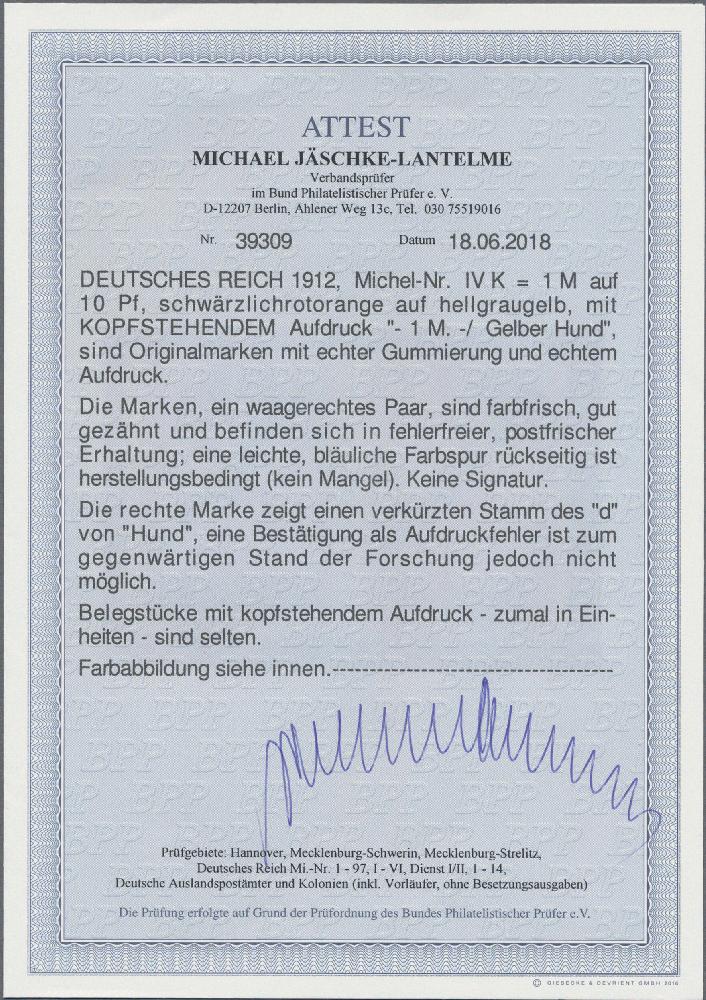 ATTEST
MICHAEL JÄSCHKE-LANTELME
Verbandsprüfer
im Bund Philatelistischer Prüfer e. V.
D-12207 Berlin, Ahlener Weg 13c, Tel. 030 75519016
Nr. 39309 Datum 18.06.2018
DEUTSCHES REICH 1912, Michel-Nr. IV K = 1 M auf
10 Pf, schwärzlichrotorange auf hellgraugelb, mit
KOPFSTEHENDEM Aufdruck "- 1 M. -/ Gelber Hund",
sind Originalmarken mit echter Gummierung und echtem
Aufdruck.
Die Marken, ein waagerechtes Paar, sind farbfrisch, gut
gezähnt und befinden sich in fehlerfreier, postfrischer
Erhaltung; eine leichte, bläuliche Farbspur rückseitig ist
herstellungsbedingt (kein Mangel). Keine Signatur.
Die rechte Marke zeigt einen verkürzten Stamm des "d"
von "Hund", eine Bestätigung als Aufdruckfehler ist zum
gegenwärtigen Stand der Forschung jedoch nicht
möglich.
Belegstücke mit kopfstehendem Aufdruck - zumal in Ein-
heiten - sind selten.
Farbabbildung siehe innen.-------------------------------------
Prüfgebiete: Hannover, Mecklenburg-Schwerin, Mecklenburg-Strelitz,
Deutsches Reich Mi.-Nr. 1 - 97, I - VI, Dienst I/II, 1 - 14,
Deutsche Auslandspostämter und Kolonien (inkl. Vorläufer, ohne Besetzungsausgaben)
Die Prüfung erfolgte auf Grund der Prüfordnung des Bundes Philatelistischer Prüfer e.V.
© GIESECKE & DEVRIENT GMBH 2016